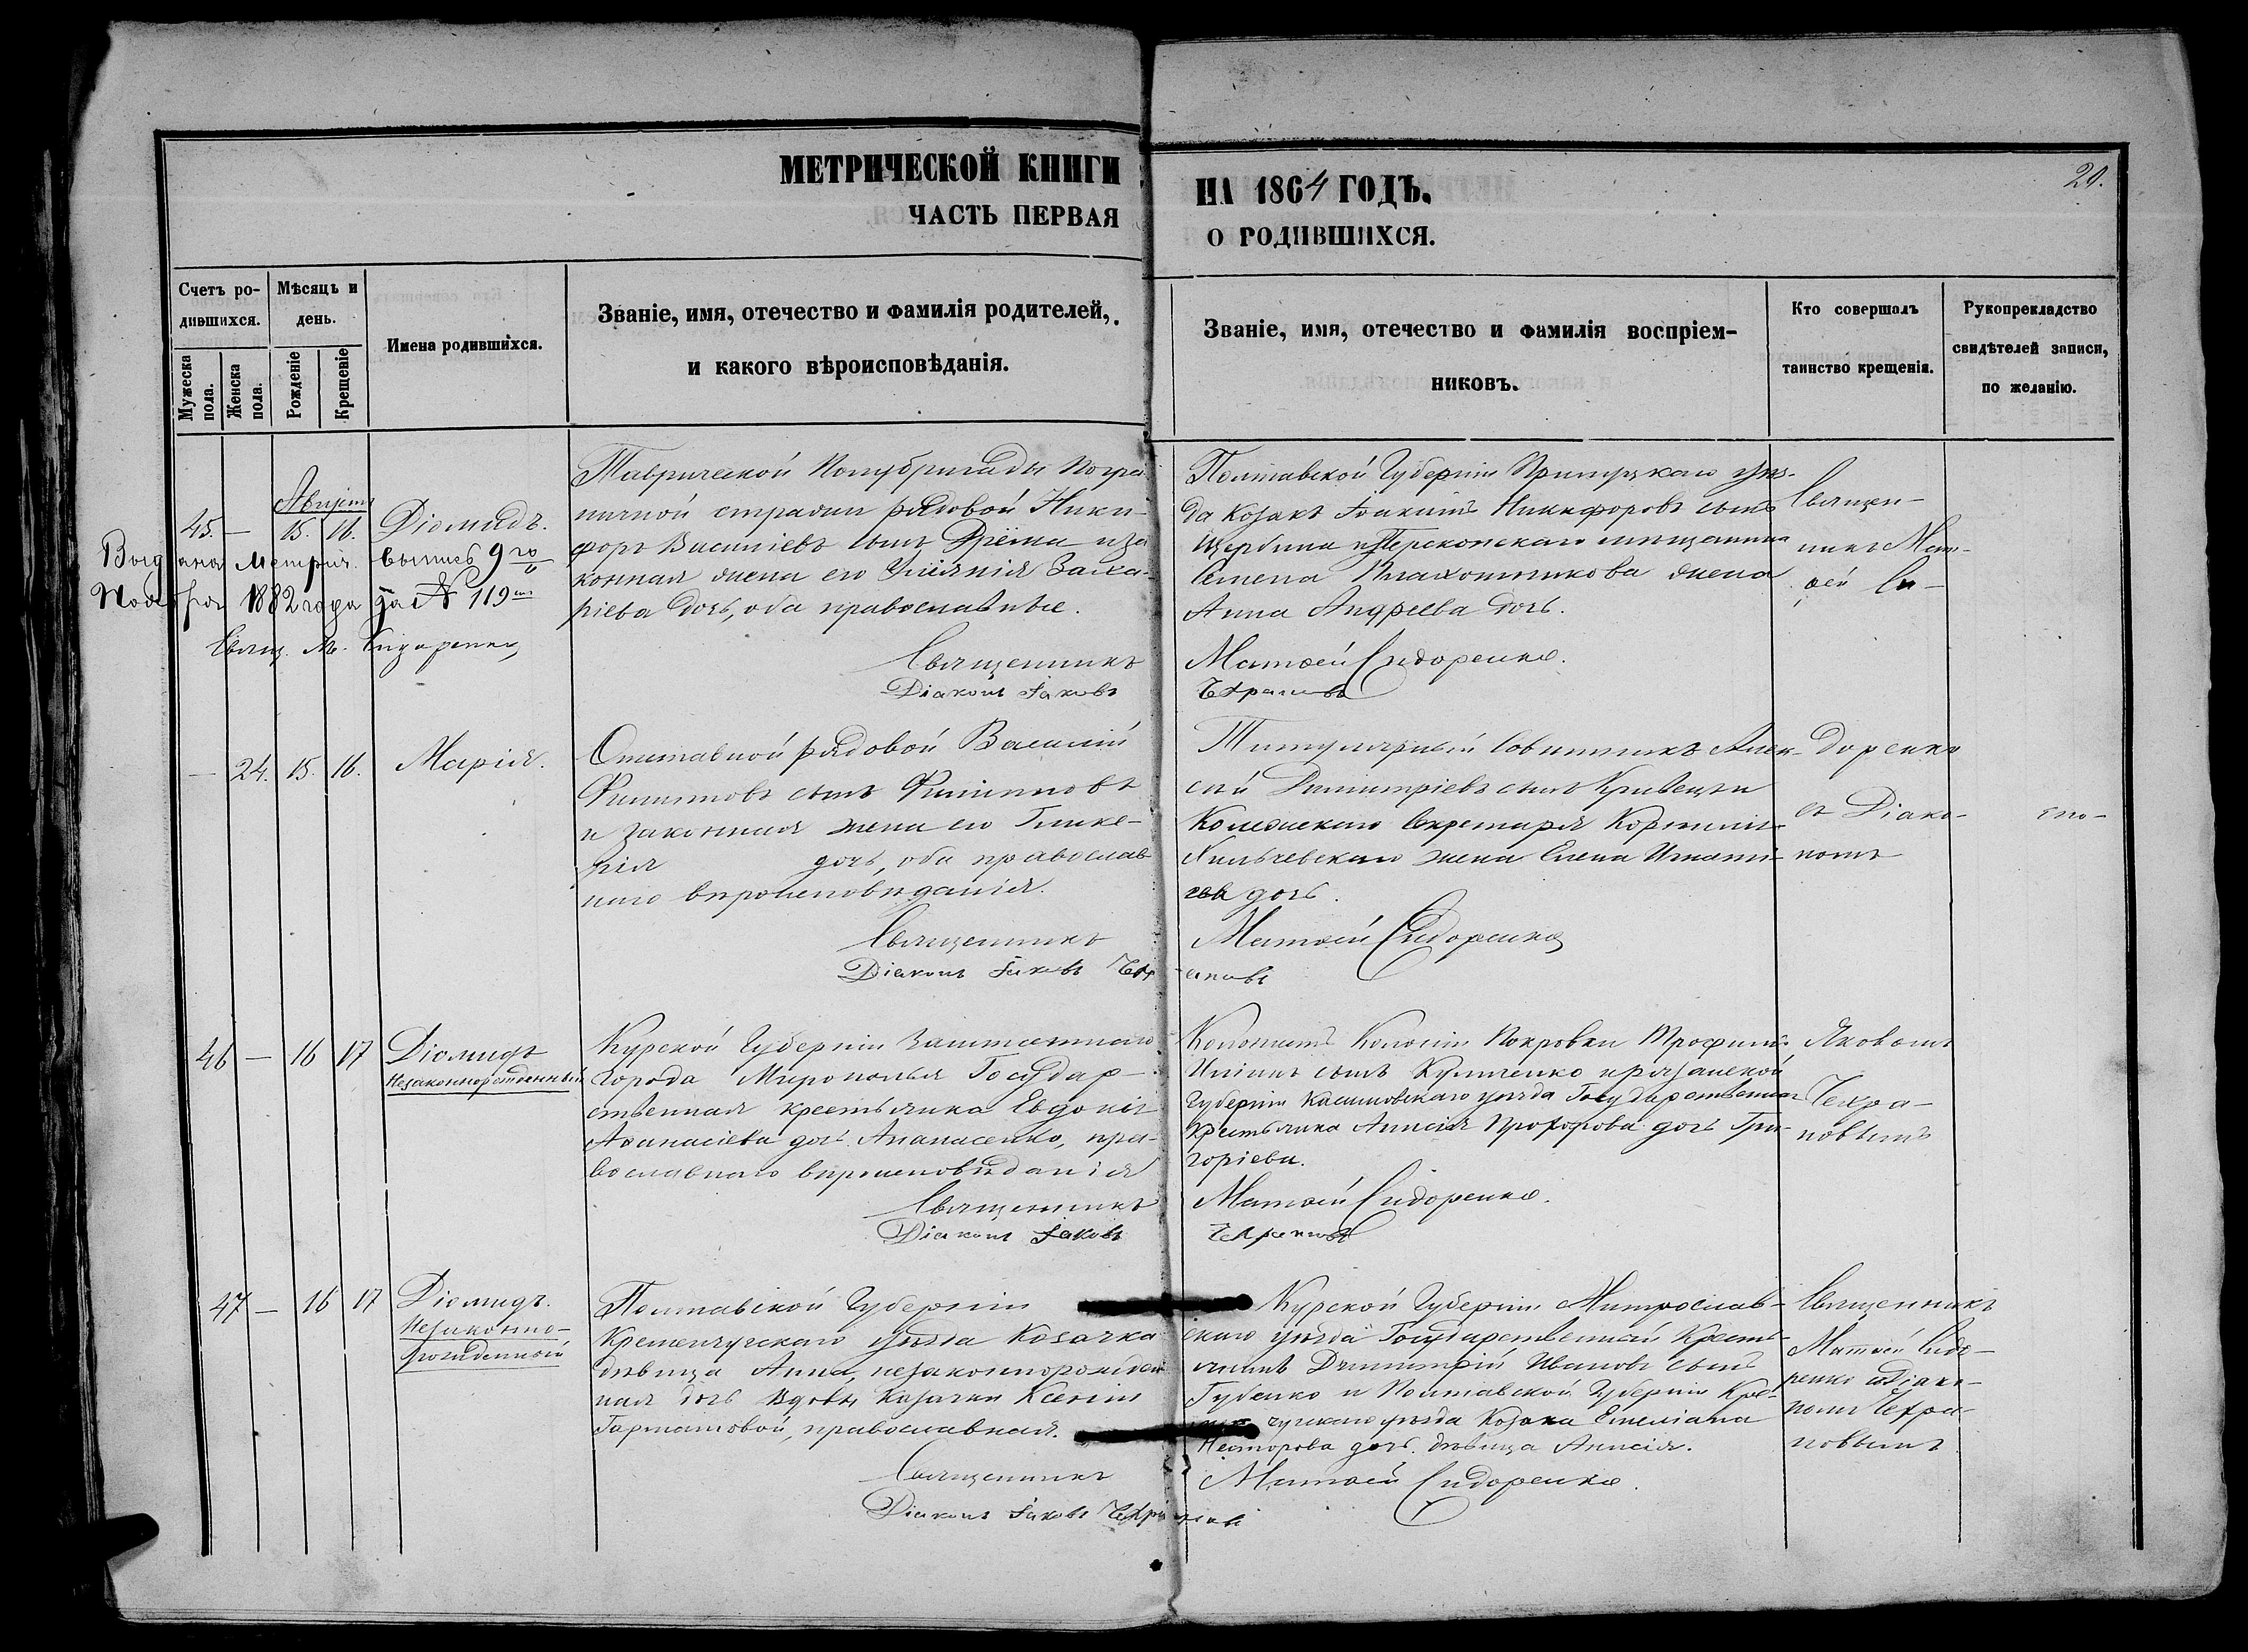 МЕТРИЧЕСКОЙ КНИГИ НА 1864 ГОДЪ.
29.
ЧАСТЬ ПЕРВАЯ О РОДИВШИХСЯ.
Счетъ ро-
дившихся.
Мужеска пола.
Женска пола.
Мѣсяць и
день.
Рожденіе
Крещеніе
Имена родившихся.
Званіе, имя, отечество и фамилія родителей,
и какого вѣроисповѣданія.
Званіе, имя, отечество и фамилія воспріем-
никовъ.
Кто совершалъ
таинство крещенія.
Рукоприкладство
свидѣтелей записи,
по желанію.
Августъ
45. — 15. 16. Діомидъ.
Выдана метрич. выпись 9го
Ноября 1882 года за № 119
Свящ. М. Сидоренко
Таврической Полубригады Погра-
ничной стражи рядовой Ники-
форъ Василіевъ сынъ и за-
конная жена его Заха-
ріева дочь, оба православные.
Священникъ
Діаконъ Іаковъ
Полтавской Губерніи уѣз-
да Козакъ Іоакимъ Никифоровъ сынъ
Щербина и мѣщанина
Семена жена
Анна Андреева дочь.
Матѳей Сидоренко.
Чехрановъ
Священ-
никъ Мат-
ѳей Си-
— 24. 15. 16. Марія.
Отставной рядовой Василій
Филипповъ сынъ Филипповъ
и законная жена его Глике-
рія дочь, оба православ-
наго вѣроисповѣданія.
Священникъ
Діаконъ Іаковъ Чехр
Титулярный Совѣтникъ Алек-
сѣй Димитріевъ сынъ Кривецъ и
Коллежскаго Секретаря
жена Елена Игнаті-
ева дочь.
Матѳей Сидоренко
ановъ
доренко
съ Діако-
номъ
46 — 16 17 Діомидъ
Незаконнорожденный
Курской Губерніи Заштатнаго
города Мирополья Государ-
ственная крестьянка Евдокія
Аѳанасіева дочь Апанасенко, пра-
вославнаго вѣроисповѣданія
Священникъ
Діаконъ Іаковъ
Колонистъ Колоніи Покровки Трофимъ
Иліинъ сынъ и рязанской
Губерніи Касимовскаго уѣзда Государственная
Крестьянка Анисія Прохорова дочь Гри-
горіева.
Матѳей Сидоренко.
Чехрановъ
Яковомъ
Чехра-
новымъ
47 — 16 17 Діомидъ.
Незаконно-
рожденный
Полтавской Губерніи
Кременчугскаго уѣзда Козачка
дѣвица Анна, незаконнорожден-
ная дочь вдовы Казачки Ксеніи
православная.
Священникъ
Діаконъ Іаковъ Чехра
Курской Губерніи
скаго уѣзда Государственный Кресть-
янинъ Димитрій Ивановъ сынъ
Губенко и Полтавской Губерніи Кре-
чугскаго уѣзда Козака Емеліана
Несторова дочь дѣвица Анисія.
Матѳей Сидоренко.
новъ
Священникъ
Матѳей Сидо-
ренко съ Діако-
номъ Чехра-
новымъ